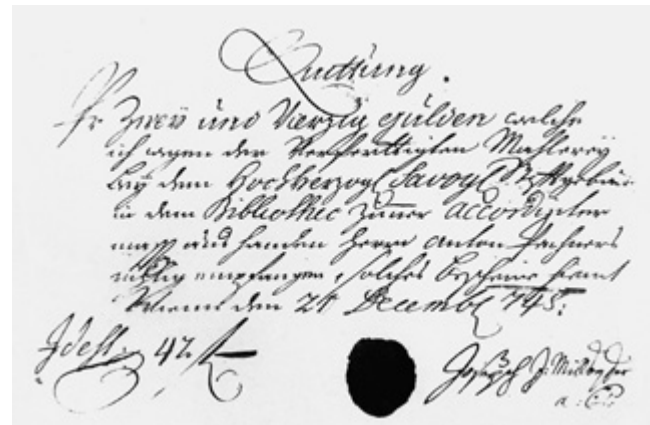 Quittung.
Pr Zwey und Vierzig gülden welche
ich wegen der Verferttigten Mahlerey
bey dem Hochherzogl Savoyl
in dem Bibliothec Zimer accordirter
massen aus handen Herrn Anton Pachners
richtig empfangen, solches bescheine hiemit
Wienn den 21 Decembl 745:
Idest. 42 f
Joseph J: Mildorfer